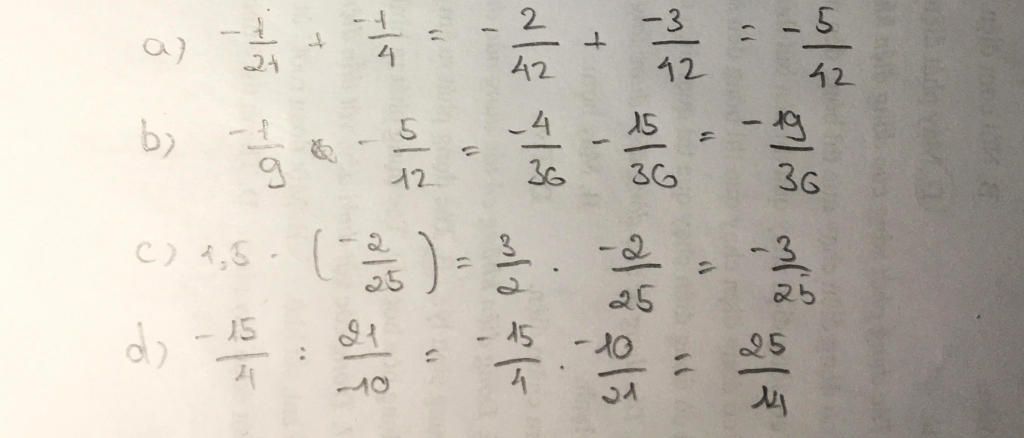 a) -1/21 + -1/4 = - 2/42 + -3/42 = - 5/42
b) -1/9 - 5/12 = -4/36 - 15/36 = -19/36
c) 1,5 · (-2/25) = 3/2 . -2/25 = -3/25
d) -15/4 : 21/-10 = -15/4 . -10/21 = 25/14